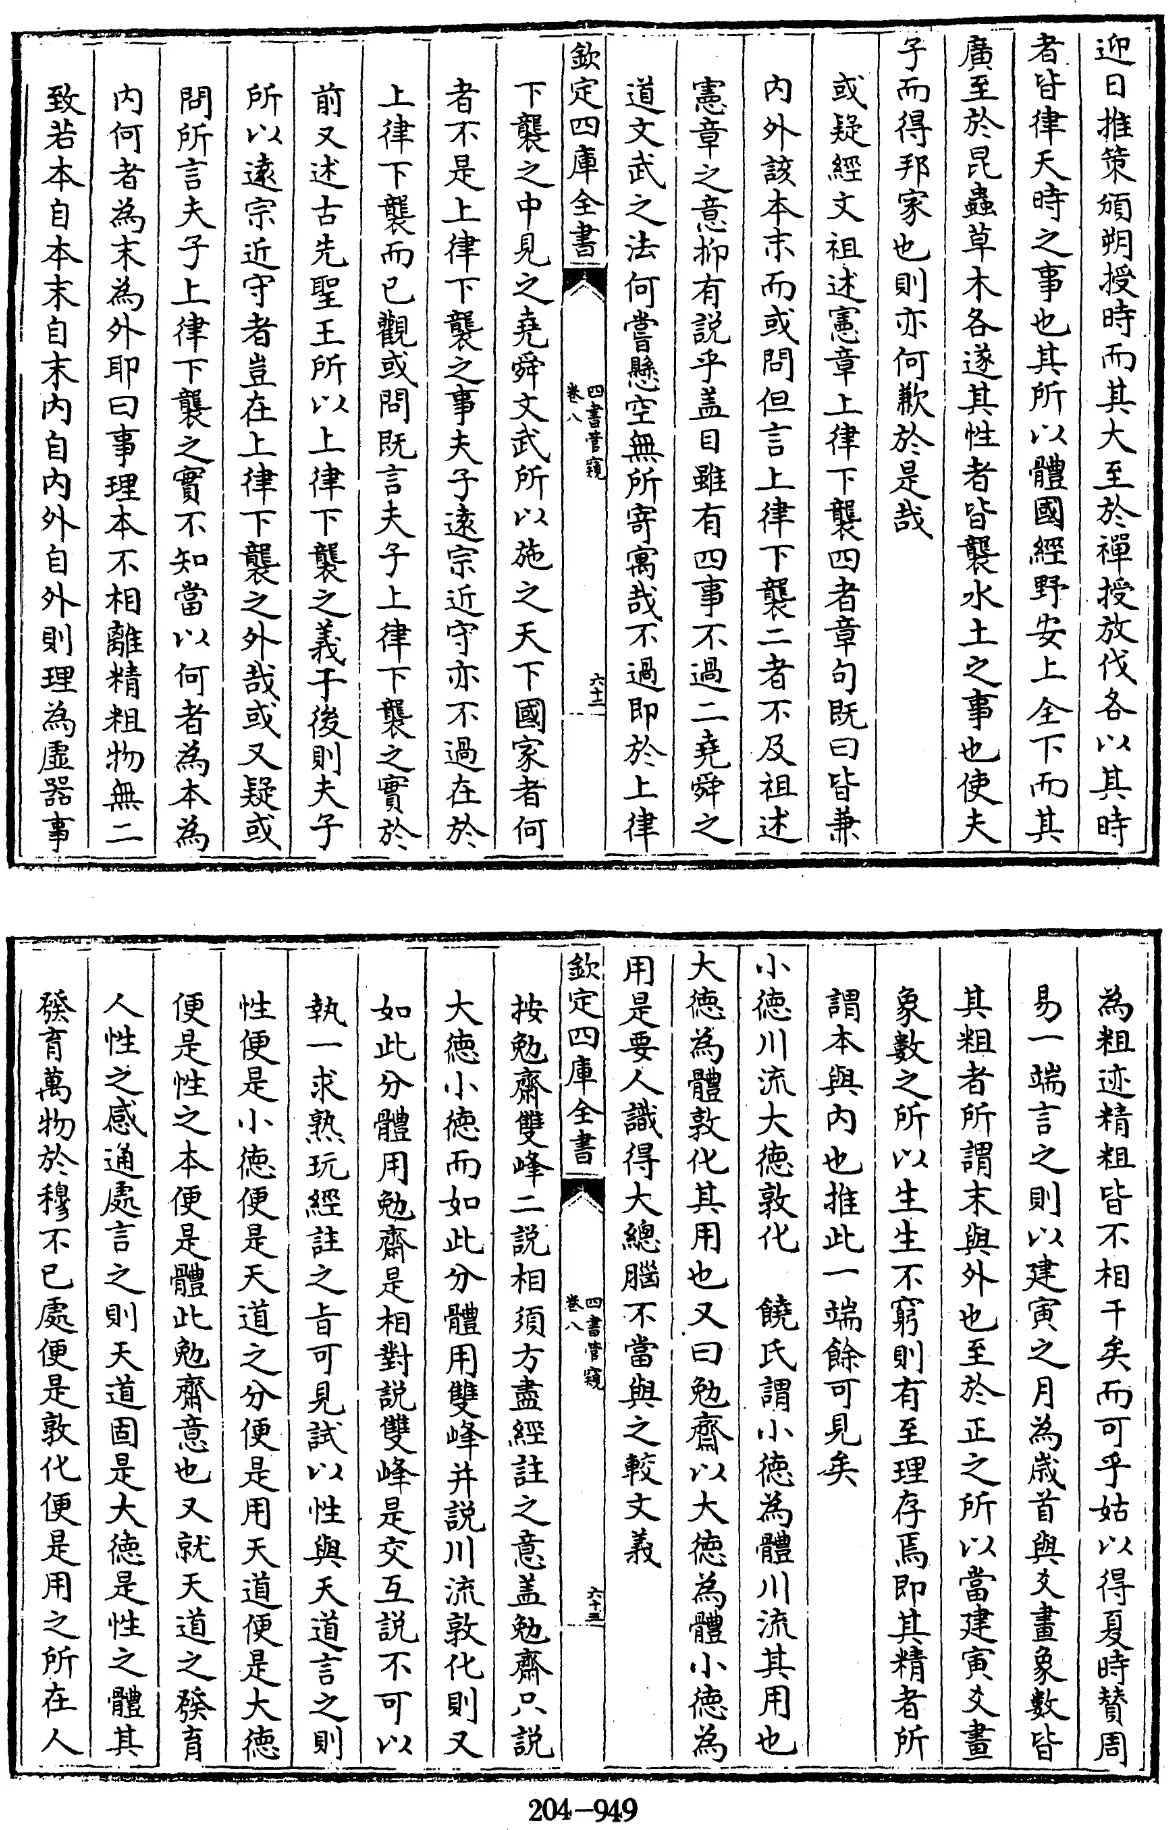 迎日推策頒朔授時而其大至於禪授放伐各以其時
者皆律天時之事也其所以體國經野安上全下而其
廣至於昆蟲草木各遂其性者皆襲水土之事也使夫
子而得邦家也則亦何歉於是哉
或疑經文祖述憲章上律下襲四者章句既曰皆兼
内外該本末而或問但言上律下襲二者不及祖述
憲章之意抑有說乎蓋目雖有四事不過二堯舜之
道文武之法何嘗懸空無所寄寓哉不過即於上律
欽定四庫全書
四書管窺
卷八
六十二
下襲之中見之堯舜文武所以施之天下國家者何
者不是上律下襲之事夫子遠宗近守亦不過在於
上律下襲而已觀或問既言夫子上律下襲之實於
前又述古先聖王所以上律下襲之義于後則夫子
所以遠宗近守者豈在上律下襲之外哉或又疑或
問所言夫子上律下襲之實不知當以何者為本為
内何者為末為外耶曰事理本不相離精粗物無二
致若本自本末自末内自内外自外則理為虛器事
為粗迹精粗皆不相干矣而可乎姑以得夏時贊周
易一端言之則以建寅之月為歲首與爻畫象數皆
其粗者所謂末與外也至於正之所以當建寅爻畫
象數之所以生生不窮則有至理存焉即其精者所
謂本與内也推此一端餘可見矣
小德川流大德敦化 饒氏謂小德為體川流其用也
大德為體敦化其用也又曰勉齋以大德為體小德為
用是要人識得大總腦不當與之較文義
欽定四庫全書
四書管窺
卷八
六十三
按勉齋雙峰二說相須方盡經註之意蓋勉齋只說
大德小德而如此分體用雙峰并說川流敦化則又
如此分體用勉齋是相對說雙峰是交互說不可以
執一求熟玩經註之旨可見試以性與天道言之則
性便是小德便是天道之分便是用天道便是大德
便是性之本便是體此勉齋意也又就天道之發育
人性之感通處言之則天道固是大德是性之體其
發育萬物於穆不已處便是敦化便是用之所在人
204-949